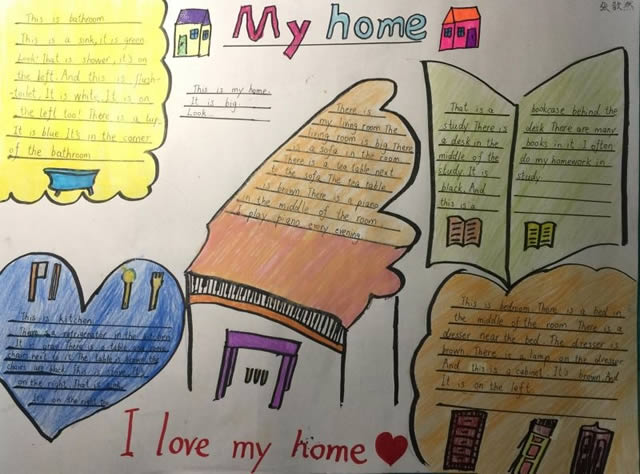 My home
This is bathroom
This is a sink, it is green
Look! That is shower, it's on
the left. And this is flush-
-toilet. It is white. It is on
the left too! There is a
It is blue It's in the corner
of the bathroom
This is my home.
It is big.
Look
There is
my living room The
living room is big There
is a sofa in the room
There is a tea table next
to the sofa The tea table
is brown. There is a piano
in the middle of the room
I play piano every evening.
That is a
study There is
a desk in the
middle of the
study. It is
black. And
this is a
bookcase behind the
desk There are many
books in it I often
do my homework in
study
This is kitchen
There is a refrigerator in the kitchen
It is There is a table
chairs next to it The table is brown the
chairs are black. This is stove. It's
on the right. That is
It's on the
This is bedroom. There is a bed in
the middle of the room There is a
dresser near the bed. The dresser is
brown There is a lamp on the dresser
And this is a cabinet. It's brown. And
It is on the left.
I love my home